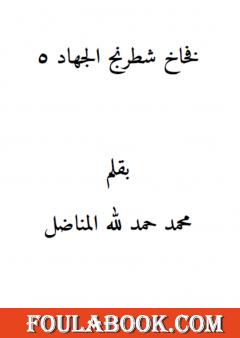 فخاخ شطرنج الجهاد ٥
بقلم
محمد حمد لله المناضل
FOULABOOK.COM